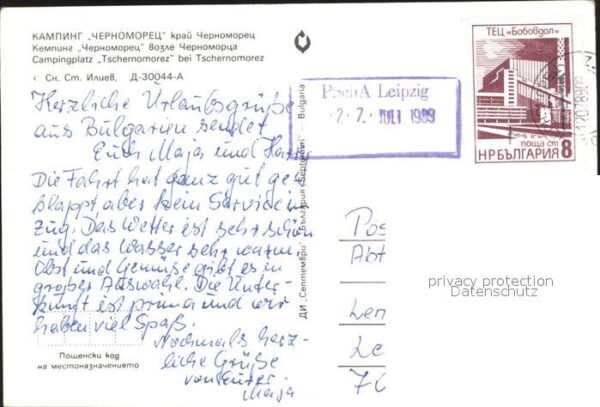 КАМПИНГ „ЧЕРНОМОРЕЦ" край Черноморец
Кемпинг „Черноморец" возле Черноморца
Campingplatz „Tschernomorez" bei Tschernomorez
Сн. Ст. Илиев, Д-30044-А
Herzliche Urlaubsgrüße
aus Bulgarien sendet
Euch Maja und
Die Fahrt hat ganz gut ge-
klappt aber kein Service im
Zug. Das Wetter ist sehr schön
und das Wasser sehr warm.
Obst und Gemüse gibt es in
großer Auswahl. Die Unter-
kunft ist prima und wir
haben viel Spaß.
Nochmals herz-
liche Grüße
von Eurer
Maja
Пощенски код
на местоназначението
ДИ „Септември" България „Septemvri" — Bulgaria
PaechA Leipzig
27. JULI 1989
ТЕЦ „Бобовдол"
поща ст
НРБЪЛГАРИЯ 8
Pos
Abt
Len
Le
70
privacy protection
Datenschutz